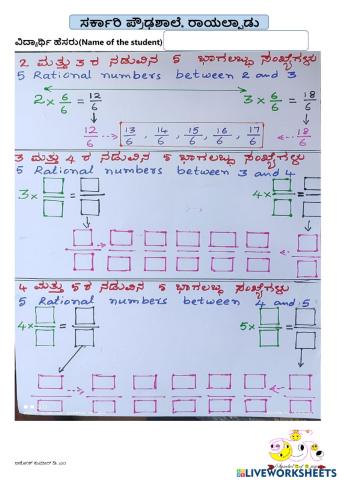 ಸರ್ಕಾರಿ ಪ್ರೌಢಶಾಲೆ, ರಾಯಲ್ಪಾಡು
ವಿದ್ಯಾರ್ಥಿ ಹೆಸರು(Name of the student)
2 ಮತ್ತು 3 ರ ನಡುವಿನ 5 ಭಾಗಲಬ್ಧ ಸಂಖ್ಯೆಗಳು
5 Rational numbers between 2 and 3
2 × 6/6 = 12/6 3 × 6/6 = 18/6
12/6 13/6 , 14/6 , 15/6 , 16/6 , 17/6 18/6
3 ಮತ್ತು 4 ರ ನಡುವಿನ 5 ಭಾಗಲಬ್ಧ ಸಂಖ್ಯೆಗಳು
5 Rational numbers between 3 and 4
3× = 4× =
4 ಮತ್ತು 5 ರ ನಡುವಿನ 5 ಭಾಗಲಬ್ಧ ಸಂಖ್ಯೆಗಳು
5 Rational numbers between 4 and 5
4× = 5× =
ಅಶೋಕ್ ಕುಮಾರ್ ಡಿ.ಎಂ
LIVEWORKSHEETS